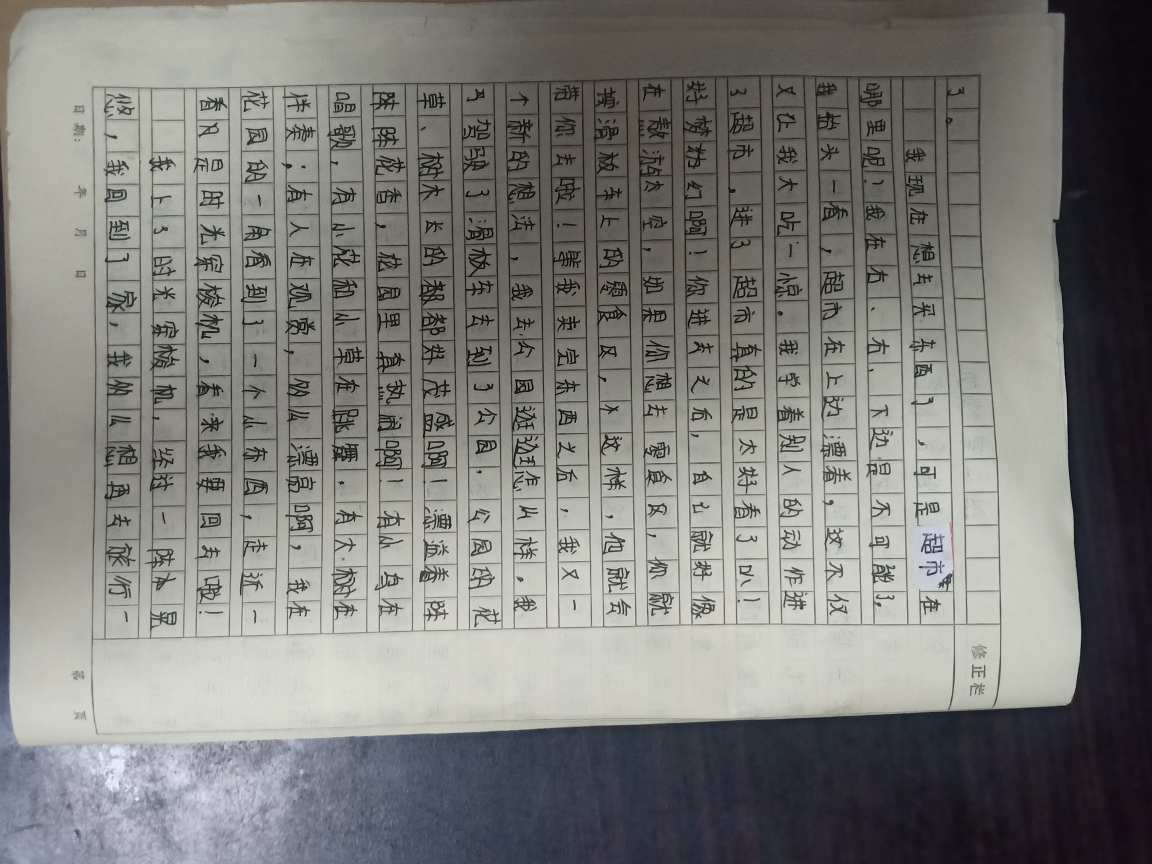 修正栏
了。
我现在想去买东西了，可是超市在
哪里呢？我在右、右、下边是不可能了，
我抬头一看，超市在上边漂着，这不仅
又让我大吃一惊。我学着别人的动作进
了超市，进了超市真的是太好看了叭！
好梦幻啊！你进去之后，自己就好像
在敖游太空，如果你想去零食区，你就
按滑板车上的零食区，这样，他就会
带你去啦！等我卖完东西之后，我又一
个新的想法，我去公园逛逛怎么样。我
驾驶了滑板车去到了公园，公园的花
草、树木长的都都好茂盛啊！漂溢着
阵阵花香，花园里真热闹啊！有小鸟在
唱歌，有小花和小草在跳舞，有大树在
伴奏；有人在观赏，多么漂亮啊，我在
花园的一角看到了一个小东西，走近一
看只是时光穿梭机，看来我要回去啦！
我上了时光穿梭机，经过一阵太晃
悠，我回到了家，我多么想再去旅行一
日期： 年 月 日 第 页